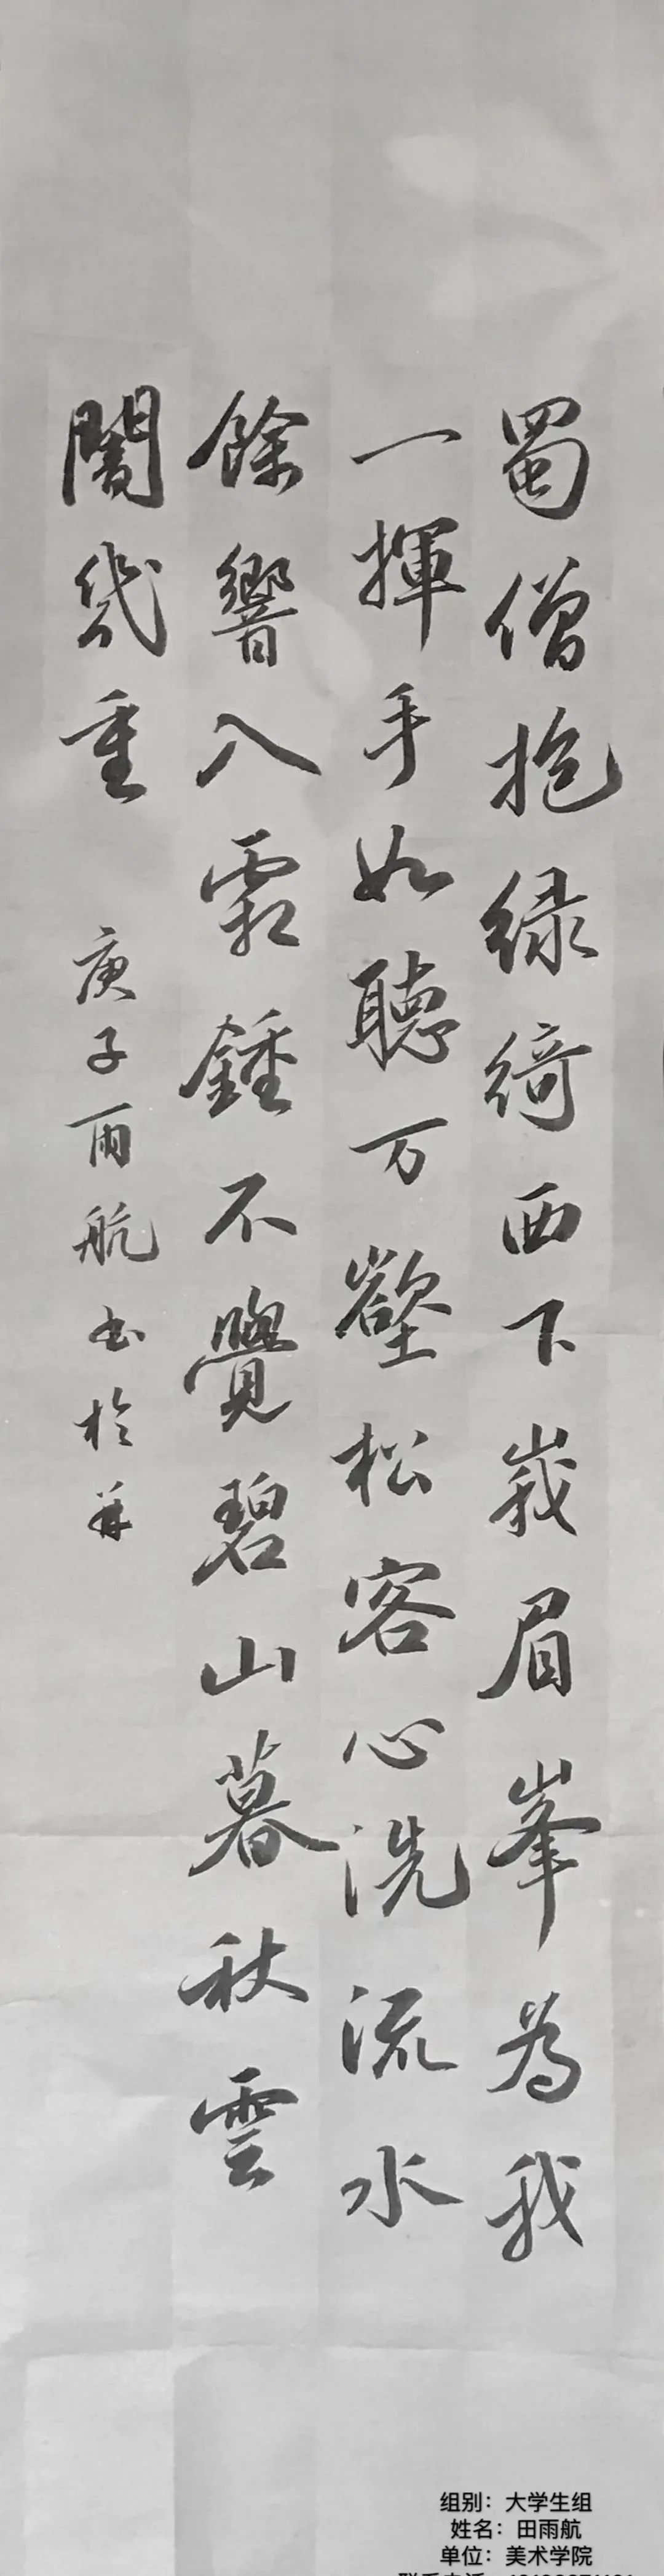 蜀僧抱绿绮西下峩眉峯为我
一揮手如聽万壑松客心洗流水
餘響入霜鍾不覺碧山暮秋雲
闇幾重
庚子雨航书於
组别：大学生组
姓名：田雨航
单位：美术学院